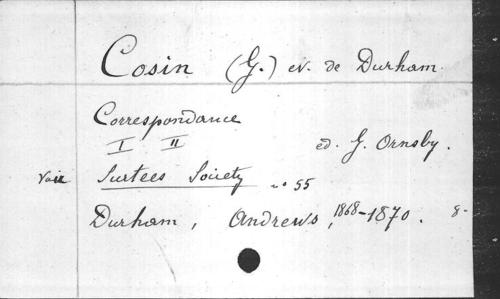 Cosin (G.) ev. de Durham.
Correspondance
I II ed. G. Ornsby.
Voir Surtees Society no 55
Durham, Andrews, 1868-1870. 8-